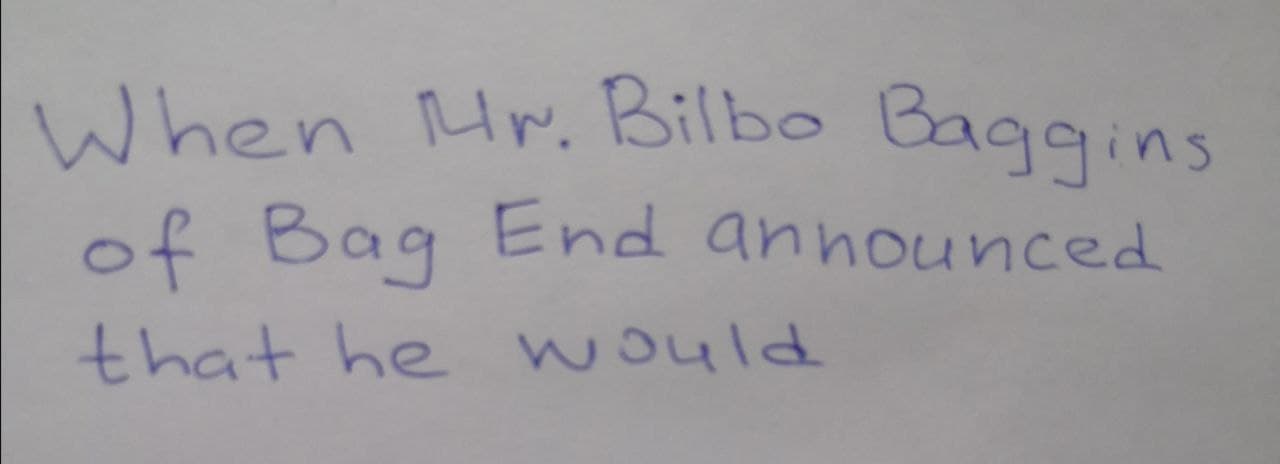 When Mr. Bilbo Baggins
of Bag End announced
that he would